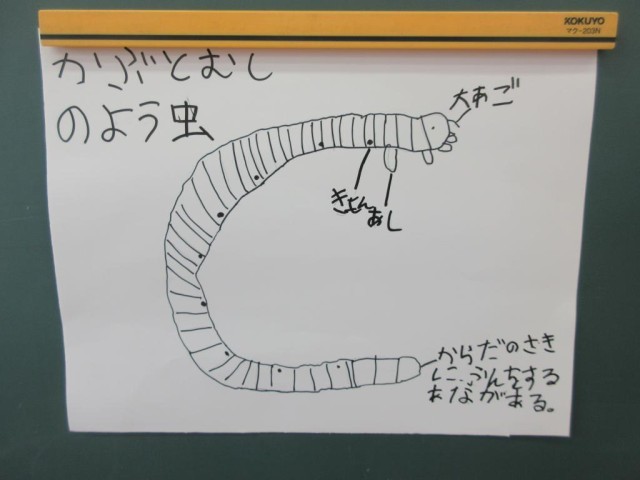 KOKUYO
マク-203N
かぶとむし
のよう虫
大あご
きもん
あし
からだのさき
にふんをする
あながある。